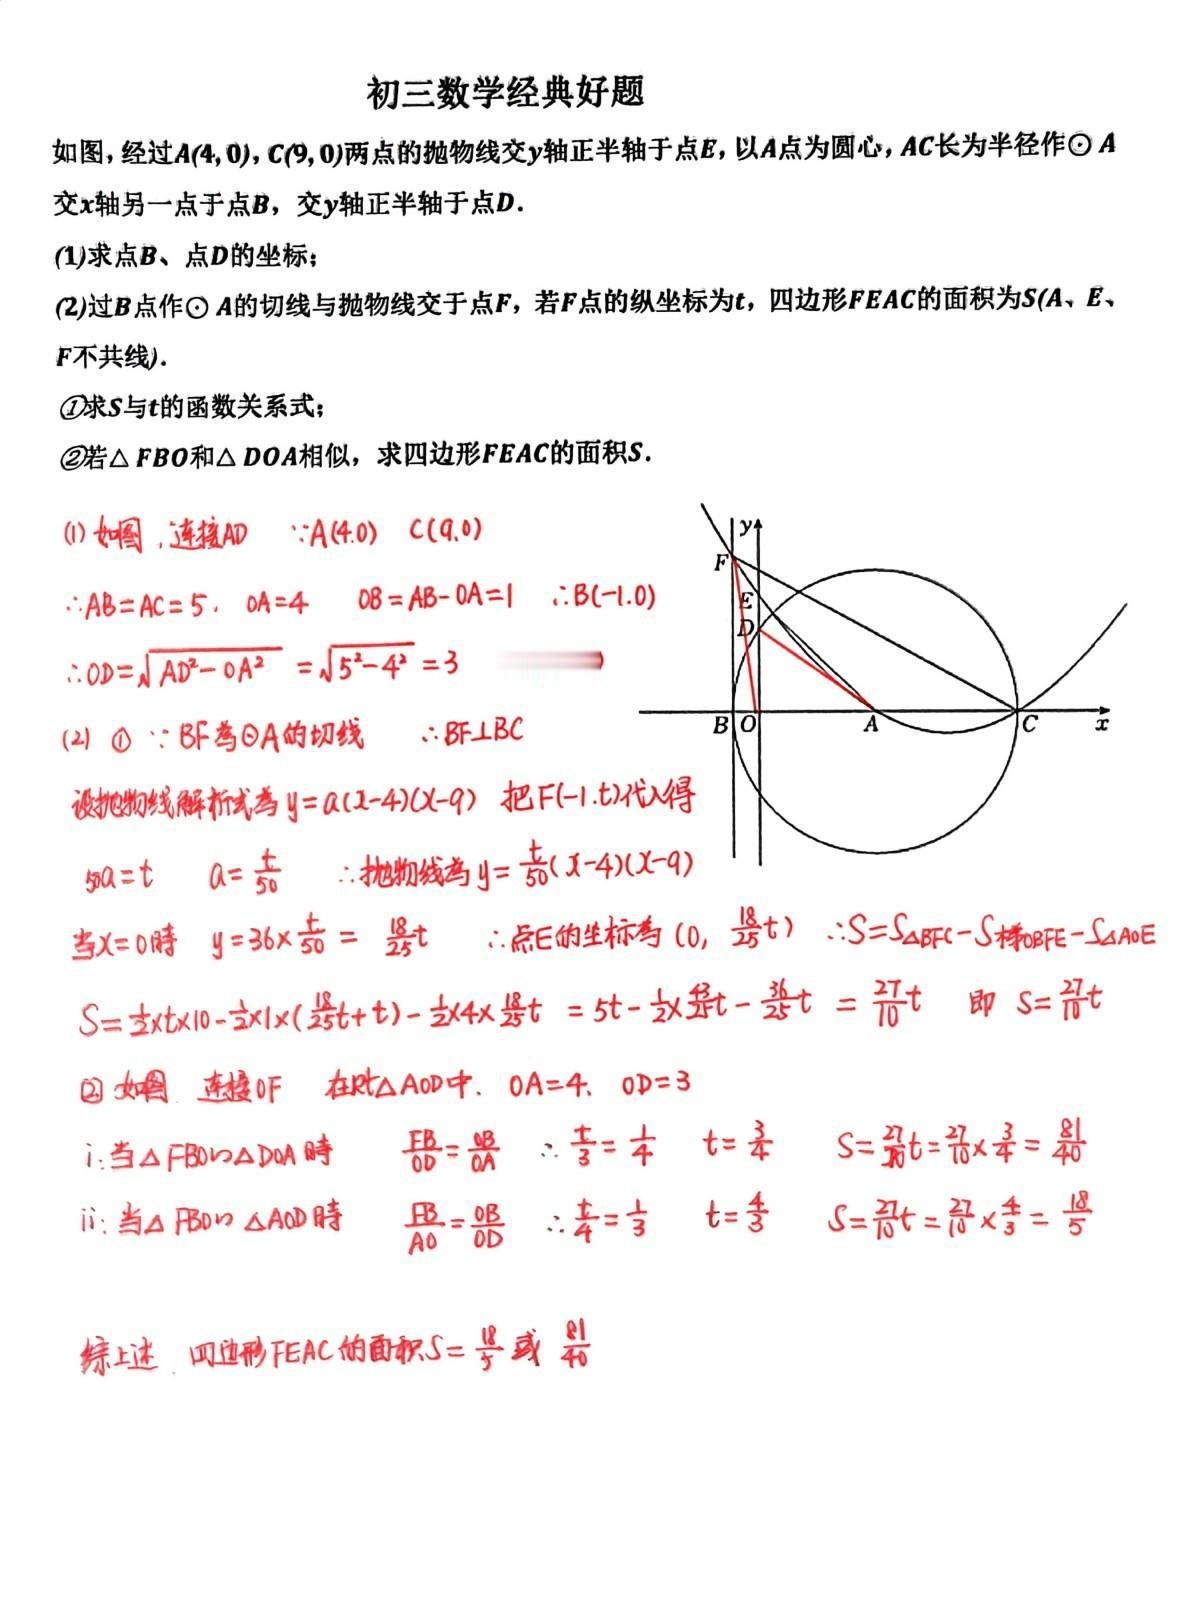 初三数学经典好题
如图，经过A(4, 0)，C(9, 0)两点的抛物线交y轴正半轴于点E，以A点为圆心，AC长为半径作⊙A
交x轴另一点于点B，交y轴正半轴于点D.
(1)求点B、点D的坐标；
(2)过B点作⊙A的切线与抛物线交于点F，若F点的纵坐标为t，四边形FEAC的面积为S(A、E、
F不共线).
①求S与t的函数关系式；
②若△FBO和△DOA相似，求四边形FEAC的面积S.
(1) 如图，连接AD ∵A(4.0) C(9.0)
∴AB=AC=5. OA=4 OB=AB-OA=1 ∴B(-1.0)
∴OD=√(AD²-OA²) =√(5²-4²) =3
(2) ① ∵BF為⊙A的切线 ∴BF⊥BC
设抛物线解析式為y=a(x-4)(x-9) 把F(-1.t)代入得
50a=t a=t/50 ∴抛物线為y=t/50(x-4)(x-9)
当x=0時 y=36×t/50 = 18/25t ∴点E的坐标為(0, 18/25t) ∴S=S△BFC-S梯OBFE-S△AOE
S=1/2×t×10-1/2×1×(18/25t+t)-1/2×4×18/25t =5t-1/2×43/25t-36/25t =27/10t 即 S=27/10t
② 如图 连接OF 在Rt△AOD中. OA=4. OD=3
i:当△FBO∽△DOA時 FB/OD=OB/OA ∴t/3=1/4 t=3/4 S=27/10t=27/10×3/4=81/40
ii:当△FBO∽△AOD時 FB/AO=OB/OD ∴t/4=1/3 t=4/3 S=27/10t=27/10×4/3=18/5
综上述. 四边形FEAC的面积S=18/5或81/40
y
F
E
D
B
O
A
C
x